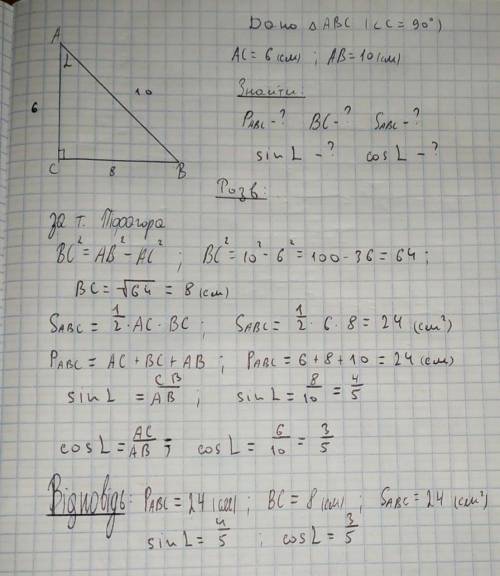 Дано △ABC (∠C = 90°)
A
AC = 6 (см) ; AB = 10 (см)
L
10
Знайти:
6
P_ABC - ? BC - ? S_ABC - ?
C 8 B
sin L - ? cos L - ?
Розв:
за т. Піфагора
BC² = AB² - AC² ; BC² = 10² - 6² = 100 - 36 = 64 ;
BC = √64 = 8 (см)
S_ABC = 1/2 · AC · BC ; S_ABC = 1/2 · 6 · 8 = 24 (см²)
P_ABC = AC + BC + AB ; P_ABC = 6 + 8 + 10 = 24 (см)
sin L = CB/AB ; sin L = 8/10 = 4/5
cos L = AC/AB ; cos L = 6/10 = 3/5
Відповідь: P_ABC = 24 (см) ; BC = 8 (см) ; S_ABC = 24 (см²)
sin L = 4/5 ; cos L = 3/5